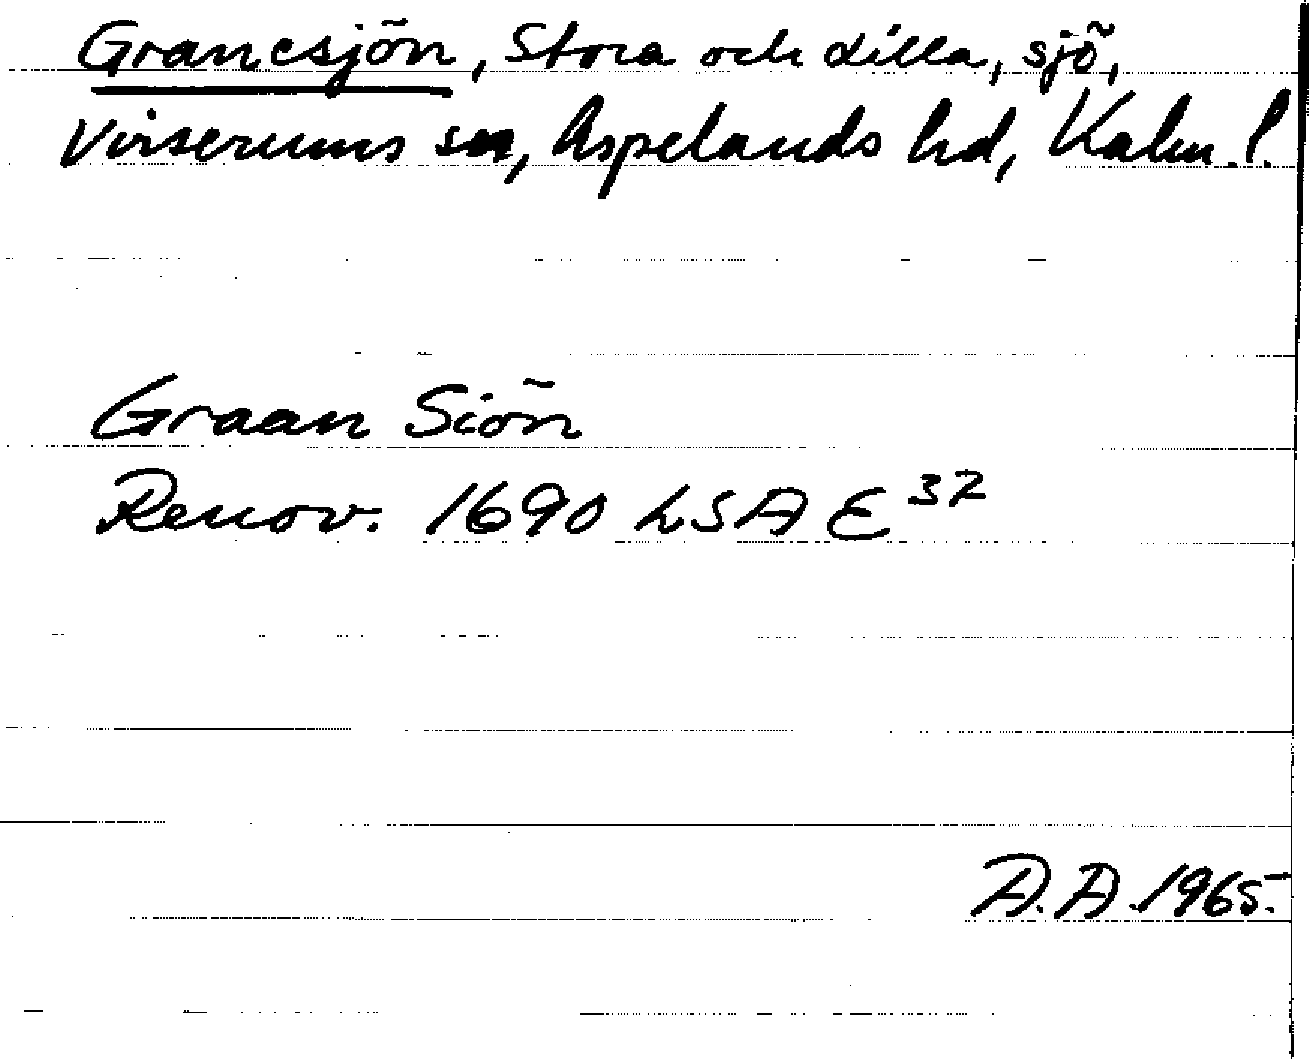 Granesjön, Stora och Lilla, sjö,
Virserums sn, Aspelands hd, Kalm. l.
Graan Siön
Renov. 1690 LSA E 37
A.A. 1965.